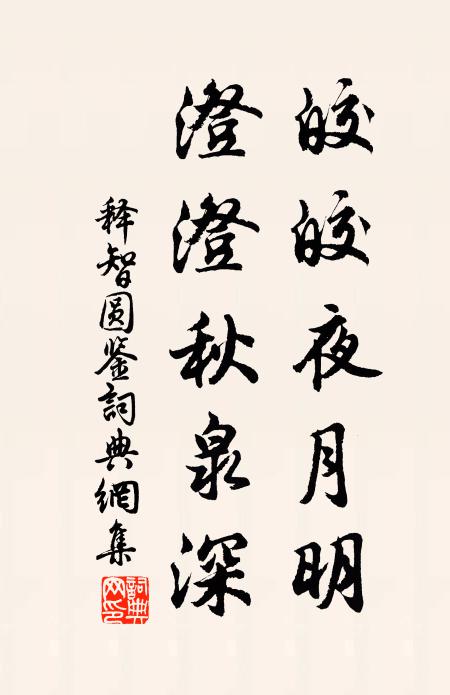 皎皎夜月明
澄澄秋泉深
释智圆鉴詞典網集
詞典网印